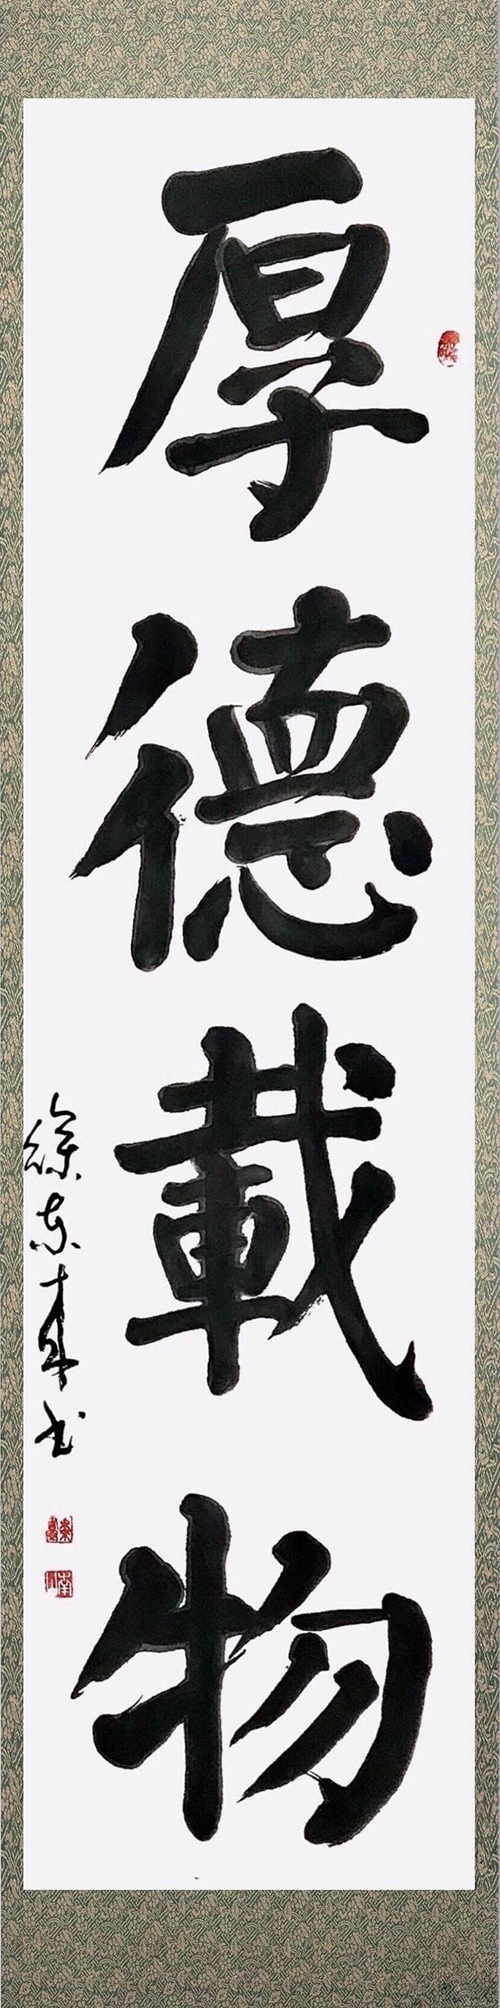 厚德載物
徐东来书